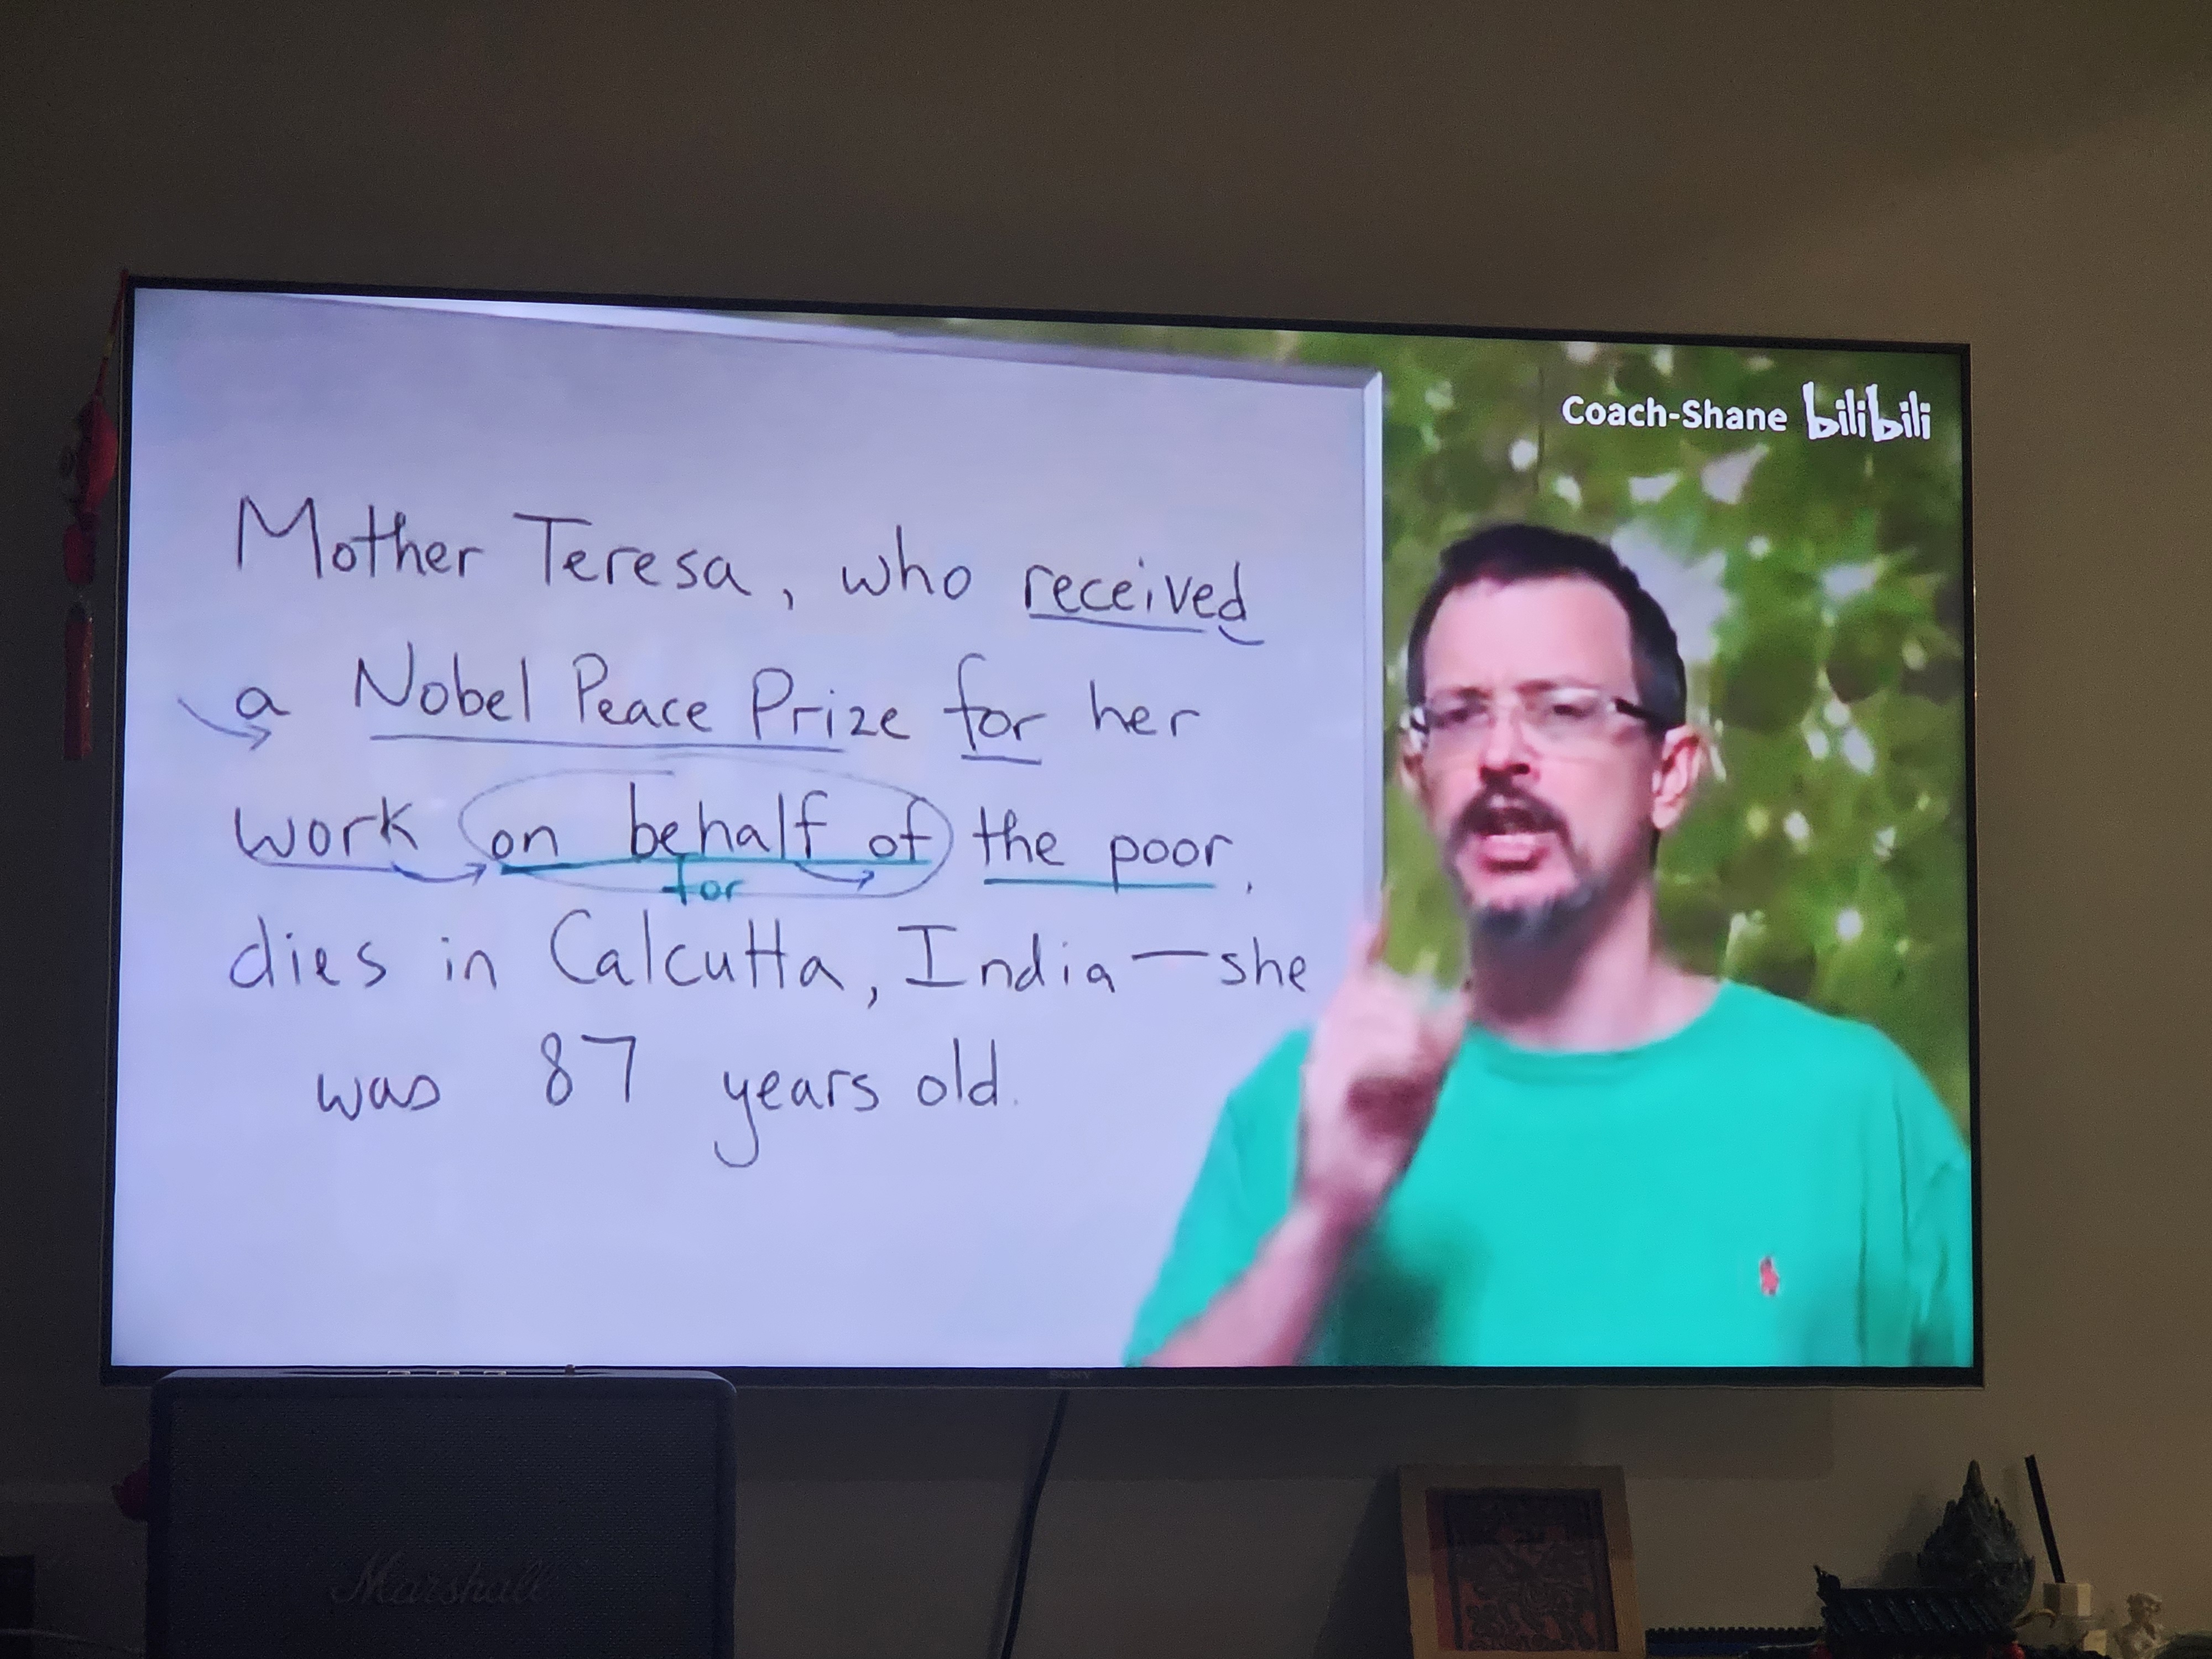 Coach-Shane bilibili
Mother Teresa, who received
a Nobel Peace Prize for her
work on behalf of the poor,
for
dies in Calcutta, India—she
was 87 years old.
SONY
Marshall